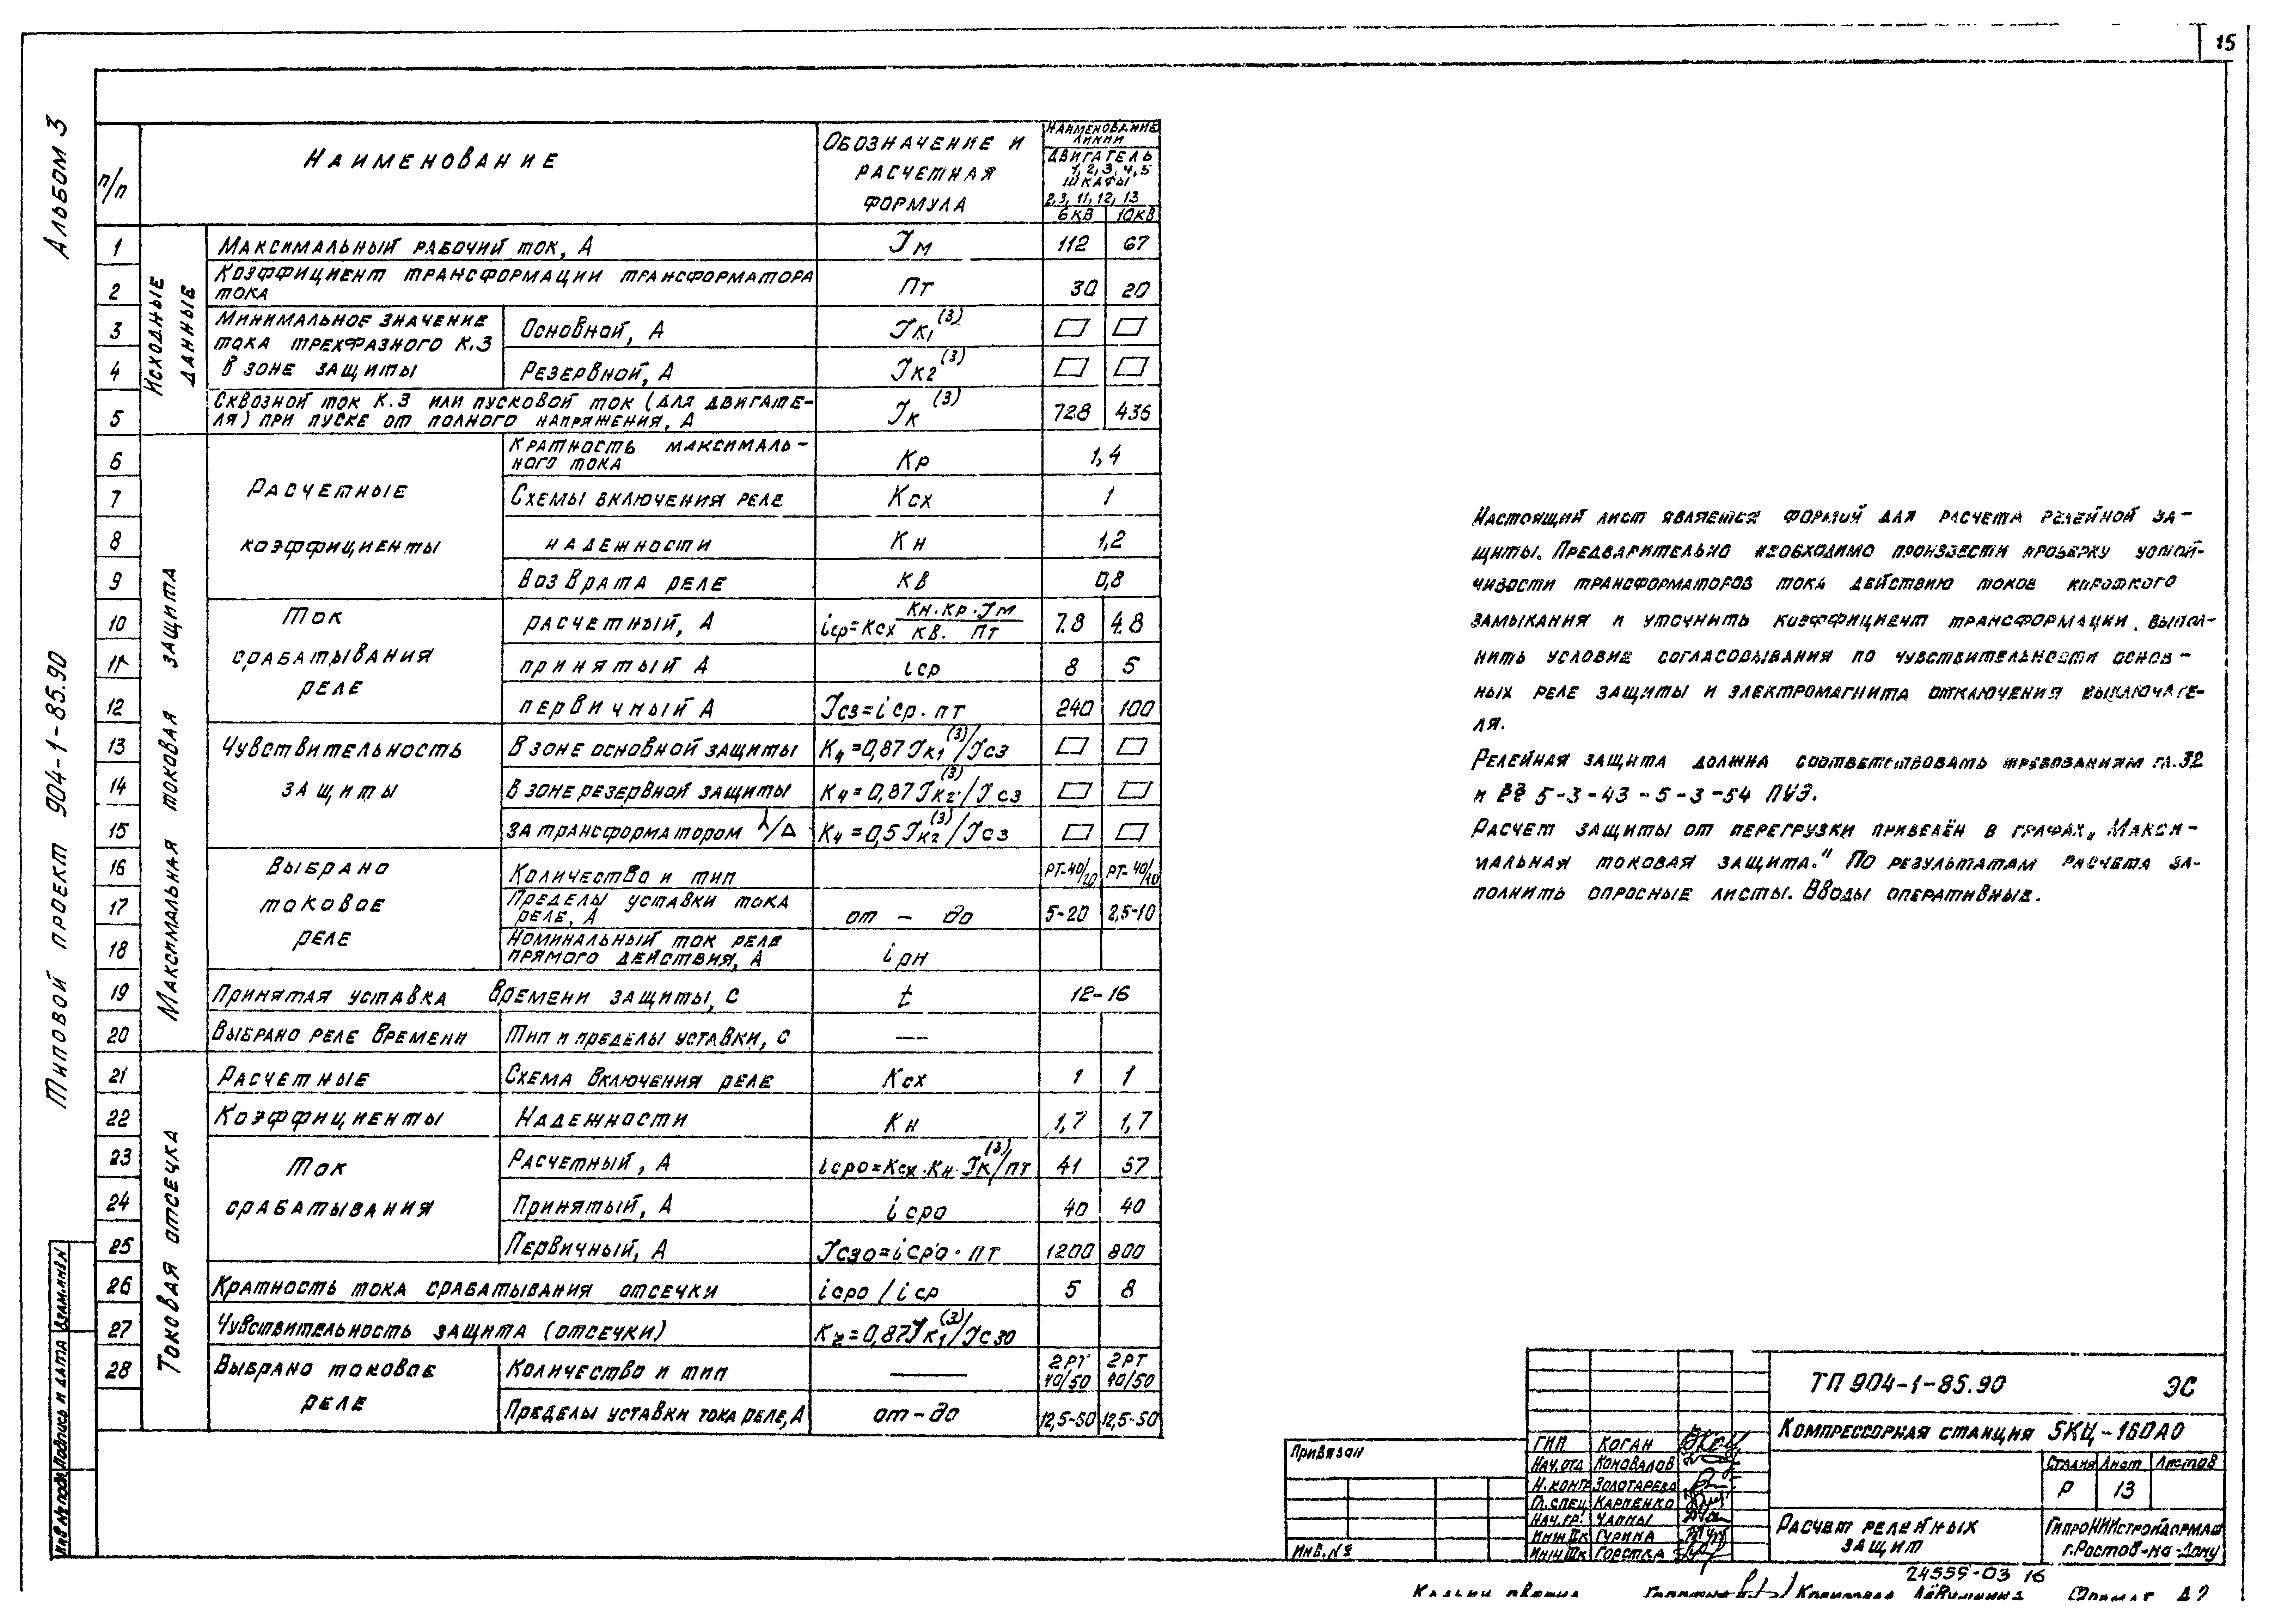 15
Альбом 3
Типовой проект 904-1-85.90
п/п
Наименование
Обозначение и
расчетная
формула
Наименование
линии
Двигатель
1,2,3,4,5
шкафы
2,3,11,12,13
6кВ 10кВ
Исходные данные
1 Максимальный рабочий ток, А Iм 112 67
2 Коэффициент трансформации трансформатора
тока Пт 30 20
Минимальное значение
тока трехфазного к.з
в зоне защиты
3 Основной, А Iк1(3) ▱ ▱
4 Резервной, А Iк2(3) ▱ ▱
5 Сквозной ток к.з или пусковой ток (для двигате-
ля) при пуске от полного напряжения, А Iк(3) 728 436
Максимальная токовая защита
Расчетные
коэффициенты
6 Кратность максималь-
ного тока Кр 1,4
7 Схемы включения реле Ксх 1
8 надежности Кн 1,2
9 возврата реле Кв 0,8
Ток
срабатывания
реле
10 расчетный, А iср=Ксх Кн·Кр·Iм / Кв. Пт 7.8 4.8
11 принятый А iср 8 5
12 первичный А Iсз=iср·пт 240 100
Чувствительность
защиты
13 В зоне основной защиты Кч=0,87Iк1(3)/Iсз ▱ ▱
14 В зоне резервной защиты Кч=0,87Iк2(3)/Iсз ▱ ▱
15 За трансформатором ⅄/Δ Кч=0,5Iк2(3)/Iсз ▱ ▱
Выбрано
токовое
реле
16 Количество и тип РТ-40/20 РТ-40/10
17 Пределы уставки тока
реле, А от - до 5-20 2,5-10
18 Номинальный ток реле
прямого действия, А iрн
19 Принятая уставка времени защиты, с t 12-16
20 Выбрано реле времени Тип и пределы уставки, с —
Токовая отсечка
21 Расчетные Схема включения реле Ксх 1 1
22 Коэффициенты Надежности Кн 1,7 1,7
Ток
срабатывания
23 Расчетный, А iсро=Ксх·Кн·Iк(3)/пт 41 37
24 Принятый, А iсро 40 40
25 Первичный, А Iсзо=iсро·пт 1200 800
26 Кратность тока срабатывания отсечки iсро/iср 5 8
27 Чувствительность защита (отсечки) Кч=0,87Iк1(3)/Iсзо
28 Выбрано токовое
реле
Количество и тип — 2РТ 40/50 2РТ 40/50
Пределы уставки тока реле, А от-до 12,5-50 12,5-50
Настоящий лист является формой для расчета релейной за-
щиты. Предварительно необходимо произвести проверку устой-
чивости трансформаторов тока действию токов короткого
замыкания и уточнить коэффициент трансформации. Выпол-
нить условие согласовывания по чувствительности основ-
ных реле защиты и электромагнита отключения выключате-
ля.
Релейная защита должна соответствовать требованиям гл.32
и §§ 5-3-43-5-3-54 ПУЭ.
Расчет защиты от перегрузки приведён в графах „Макси-
мальная токовая защита." По результатам расчета за-
полнить опросные листы. Вводы оперативные.
Взам.инв.N
Подпись и дата
Инв.№ подл.
Привязан
Инв.№
ГИП Коган
Нач.отд Коновалов
Н.контр Золотарева
Гл.спец Карпенко
Нач.гр.
Инж IIк Гурина
Инж IIк
ТП 904-1-85.90 ЭС
Компрессорная станция 5КЦ-160А0
Стадия Лист Листов
Р 13
Расчет релейных
защит
ГипроНИИстройдормаш
г.Ростов-на-Дону
24555-03 16
Формат А2